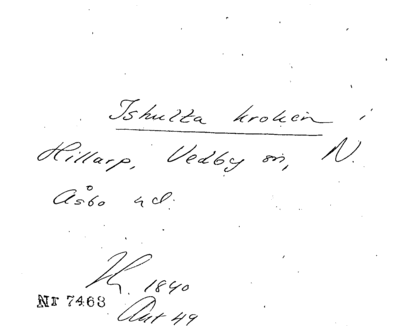 Ishulta kroken i
Hillarp, Vedby sn, N.
Åsbo hd.
1840
Nr 7463
Ant 49